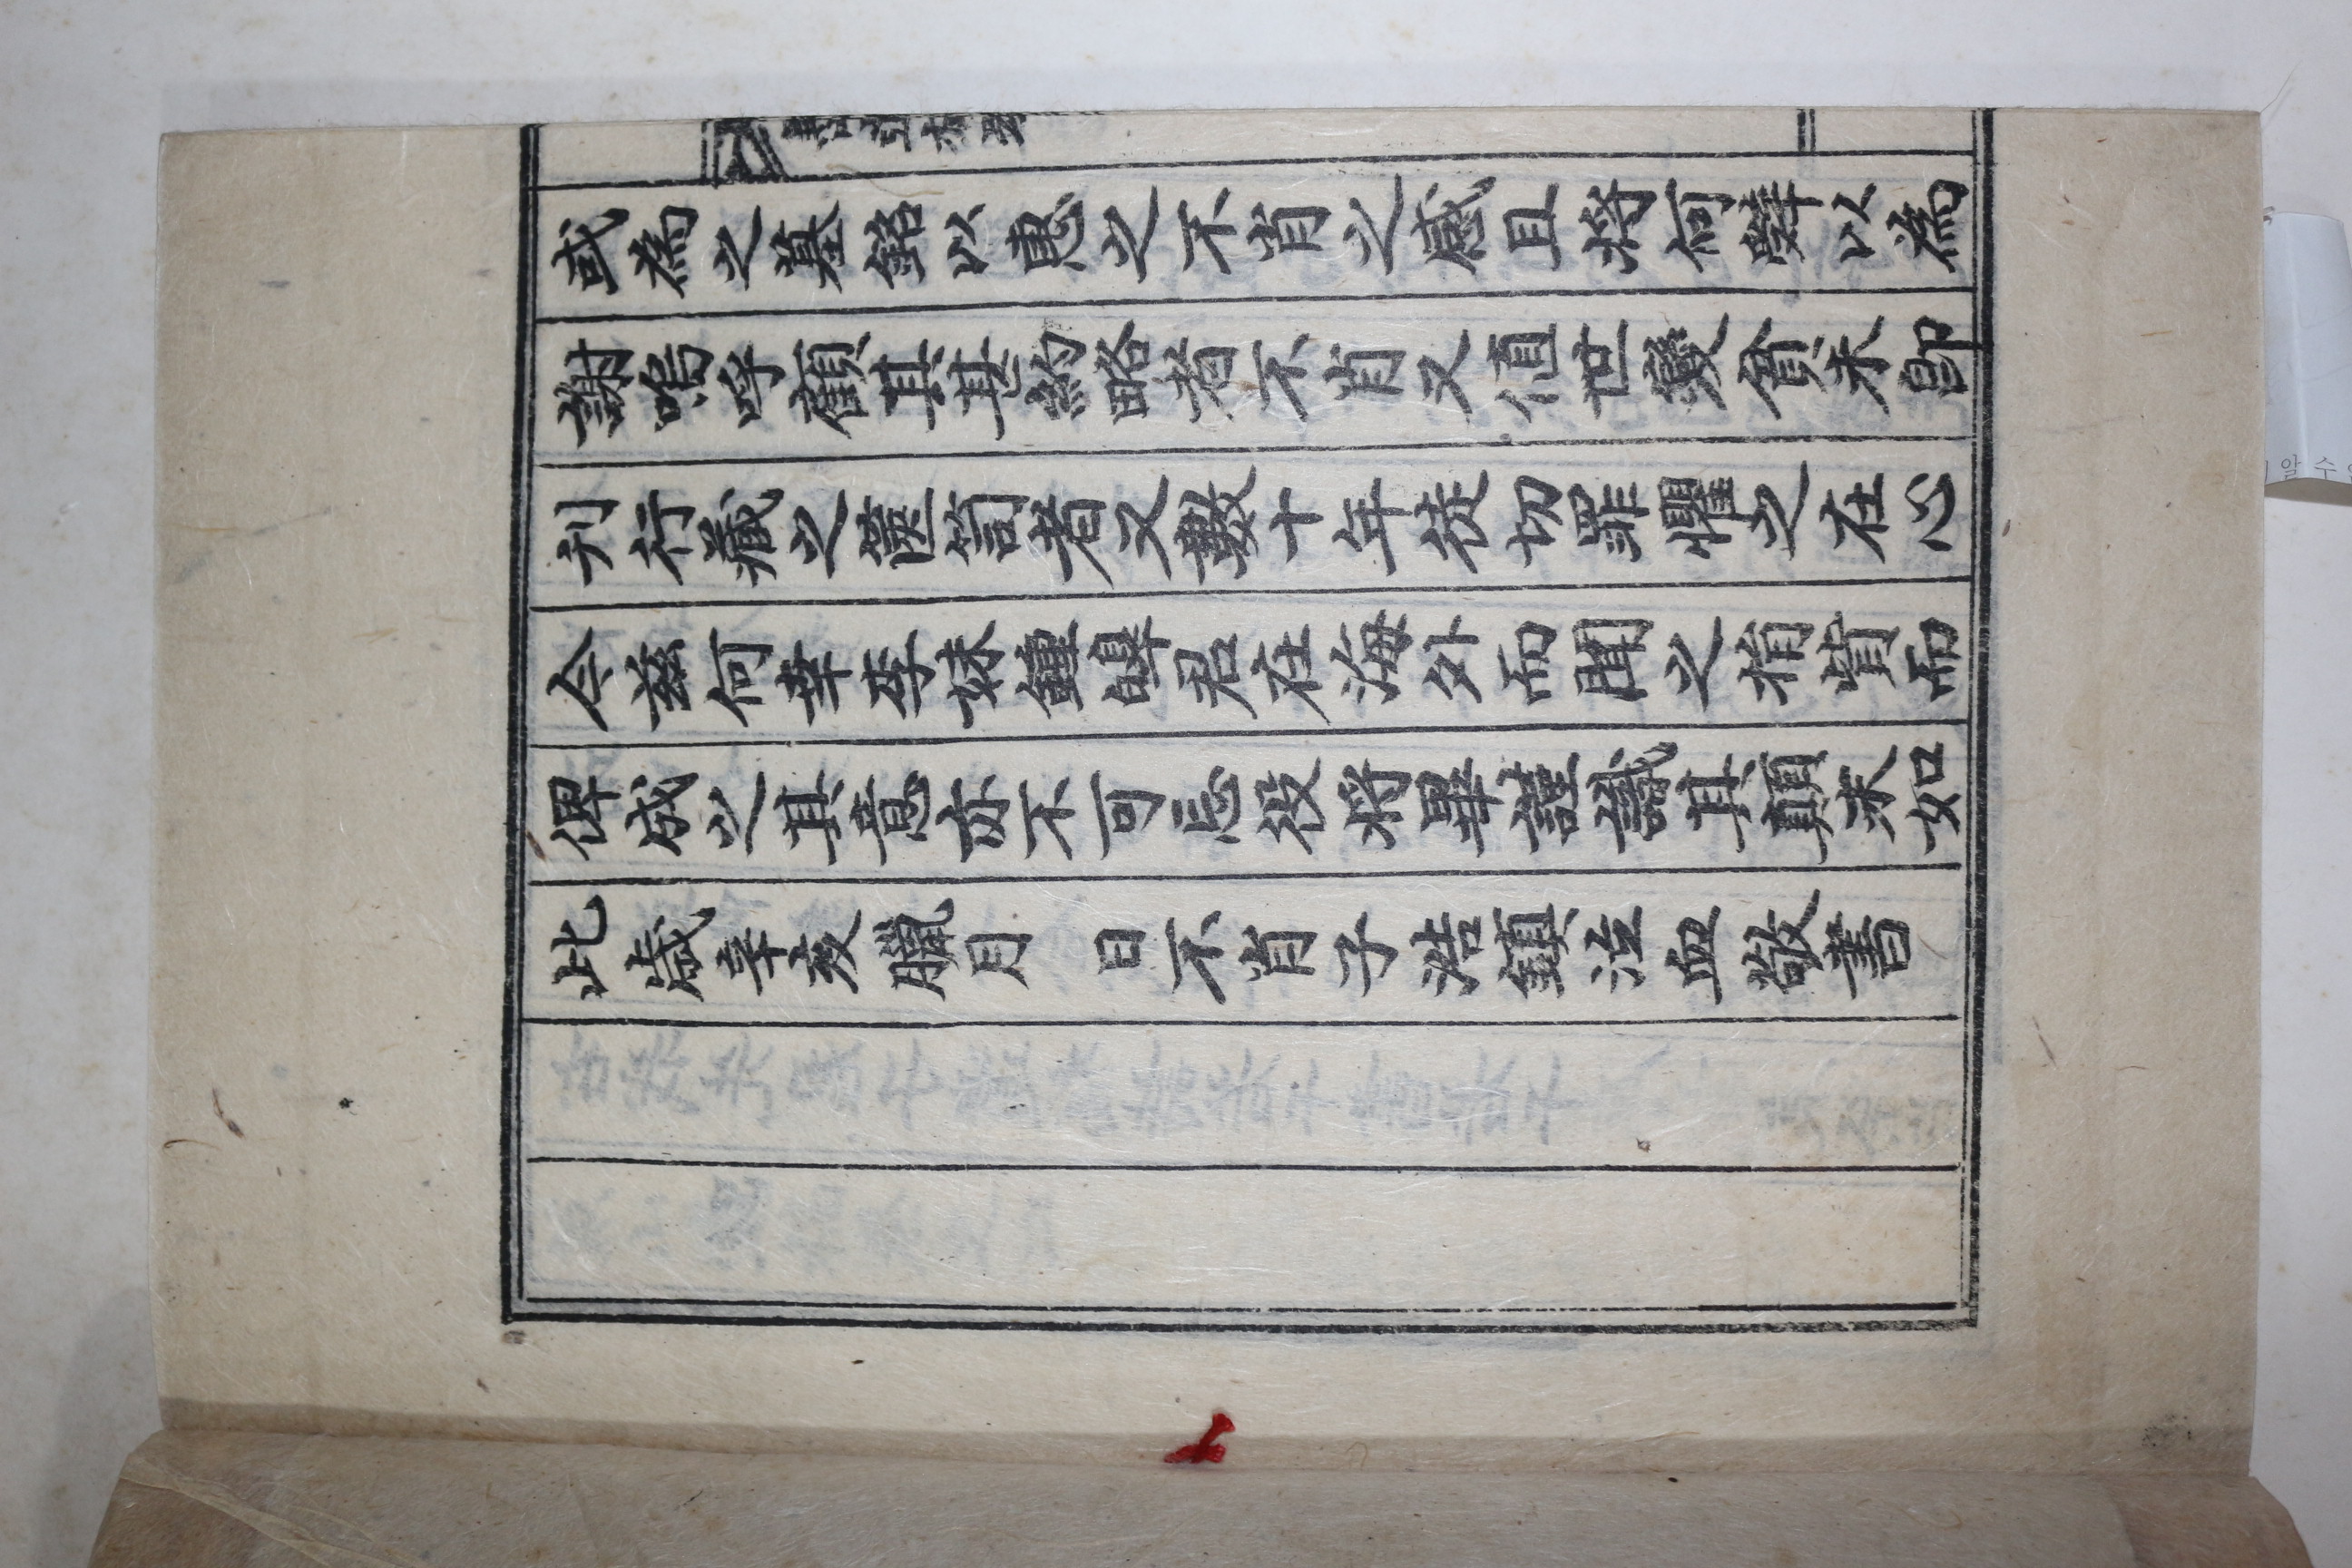 或爲之墓銘以惠之不肖之感且將何擧以爲
謝嗚呼顧其草略若不肖又値世艱貧未卽
刊行藏之篋笥者又數十年徒切罪懼之在心
今玆何幸李妹鍾皥君在海外而聞之捐貲而
俾成之其意亦不可忘役將畢謹識其顚末如
此歲辛亥臘月　日不肖子浩鎭泣血敬書
알수